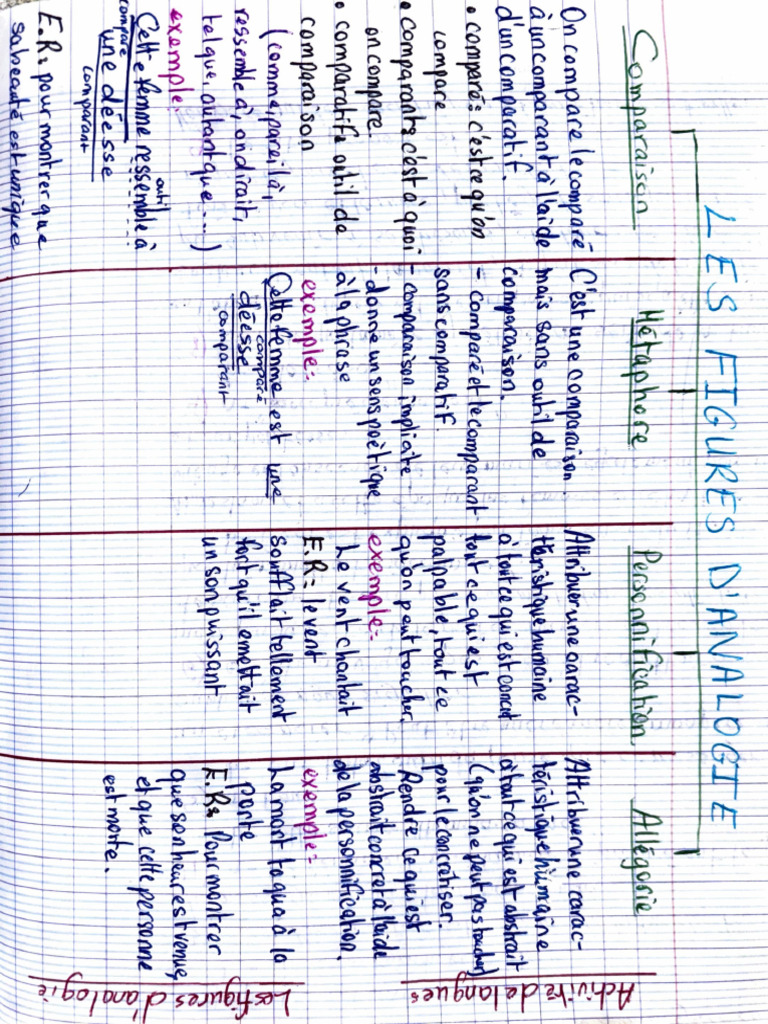 Activité de langues
Les figures d'analogie
LES FIGURES D'ANALOGIE
Comparaison
On compare le comparé
à un comparant à l'aide
d'un comparatif.
• comparé: c'est ce qu'on
compare
• comparant: c'est à quoi
on compare
• comparatif: outil de
comparaison
(comme, pareil à,
ressemble à, on dirait,
tel que, autant que ....)
exemple:
Cette femme ressemble à
comparé outil
une déesse
comparant
E.R: pour montrer que
sa beauté est unique
Métaphore
C'est une comparaison
mais sans outil de
comparaison.
= comparé et le comparant
sans comparatif.
- comparaison implicite
- donne un sens poètique
à la phrase
exemple:
Cette femme est une
comparé
déesse
comparant
Personnification
Attribuer une carac-
téristique humaine
à tout ce qui est concret
tout ce qui est
palpable, tout ce
qu'on peut toucher.
exemple:
Le vent chantait
E.R: le vent
soufflait tellement
fort qu'il émettait
un son puissant
Allégorie
Attribuer une carac-
téristique humaine
à tout ce qui est abstrait
(qu'on ne peut pas toucher)
pour le concrétiser.
Rendre ce qui est
abstrait concret à l'aide
de la personnification.
exemple:
La mort toqua à la
porte
E.R: Pour montrer
que son heure est venue,
et que cette personne
est morte.